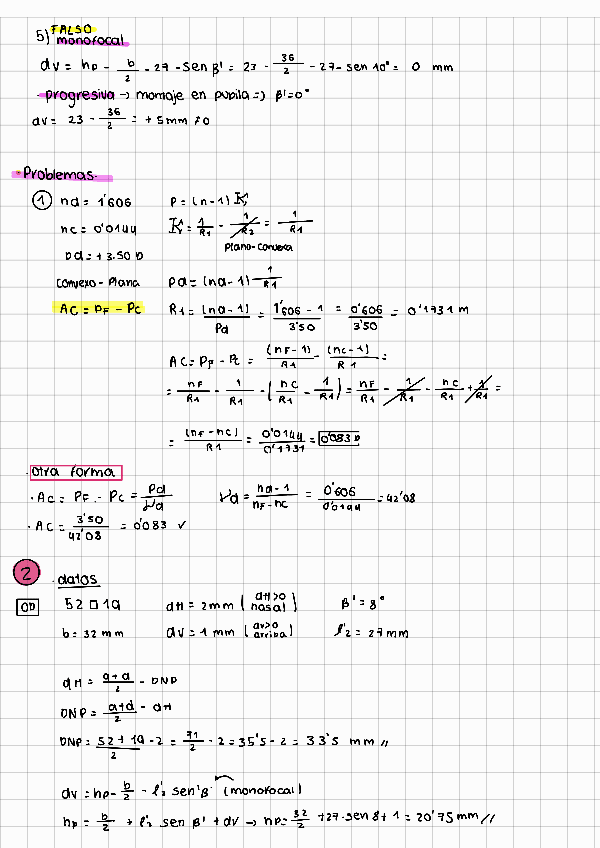 5) FALSO
monofocal
dv = hp - b/2 - 27 · sen β' = 23 - 36/2 - 27 · sen 10° = 0 mm
progresiva → montaje en pupila => β' = 0°
dv = 23 - 36/2 = + 5mm ≠ 0
• Problemas.
① nd = 1'606 P = (n-1) K
nc = 0'0144 K = 1/R1 - 1/R2 = 1/R1
Plano-convexa
Pd = + 3.50 D
convexo - Plana Pd = (nd - 1) 1/R1
AC = PF - PC R1 = (nd - 1)/Pd = 1'606 - 1/3'50 = 0'606/3'50 = 0'1731 m
AC = PF - PC = (nF - 1)/R1 - (nc - 1)/R1 =
= nF/R1 - 1/R1 - (nC/R1 - 1/R1) = nF/R1 - 1/R1 - nC/R1 + 1/R1 =
= (nF - nC)/R1 = 0'0144/0'1731 = 0'083 D
. Otra forma
· AC = PF - PC = Pd/νd νd = nd - 1/nF - nC = 0'606/0'0144 = 42'08
· AC = 3'50/42'08 = 0'083 ✓
② . datos
OD 52 □ 19 dH = 2mm (dH>0 nasal) β' = 8°
b = 32 mm dv = 1 mm (dv>0 arriba) l'2 = 27 mm
dH = a+d/2 - DNP
DNP = a+d/2 - dH
DNP = 52 + 19/2 - 2 = 71/2 - 2 = 35'5 - 2 = 33'5 mm //
dv = hp - b/2 - l'2 sen β' (monofocal)
hp = b/2 + l'2 sen β' + dv → hp = 32/2 + 27 · sen 8 + 1 = 20'75 mm //